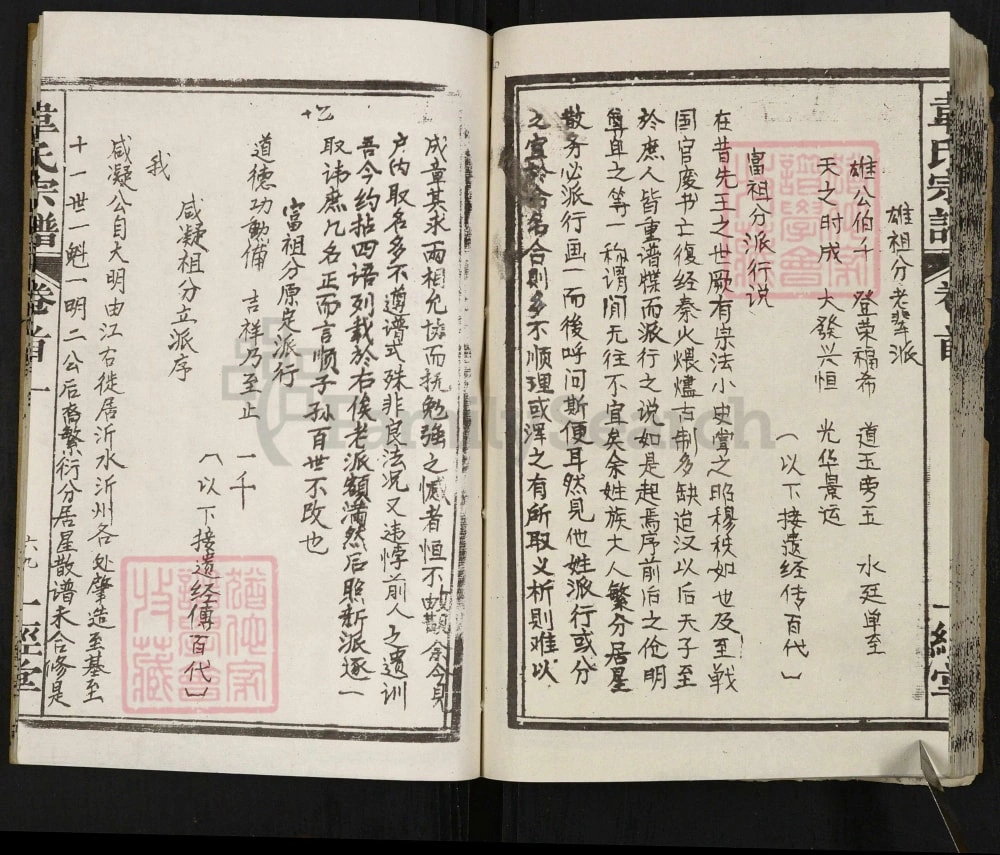 韋氏宗譜
卷首
一經堂
雄祖分老輩派
雄公伯千 登荣福希 道玉 五 水廷单至
天之时成 大發兴恒 光华景运
(以下接遗经传百代)
富祖分派行说
在昔先王之世厥有宗法小史掌之昭穆秩如也及至戰
国官废书亡復经秦火煨燼古制多缺迨汉以后天子至
於庶人皆重谱牒而派行之说如是起焉序前后之伦明
尊卑之等一称谓间无往不宜矣余姓族大人繁分居星
散务必派行画一而後呼问斯便耳然見他姓派行或分
之宜於命名合則多不顺理或泽之有所取义析則难以
成章其求两相允协而抚勉强之憾者恒不由觀余今見
户内取名多不遵谱式殊非良法况又违悖前人之遗训
吾今约拈四语列载於右俟老派額满然后照新派逐一
取讳庶几名正而言顺子子孙百世不改也
十乙
富祖分原定派行
道德功勳備 吉祥乃至止 一千
(以下接遗经傳百代)
咸凝祖分立派序
我
咸凝公自大明由江右徙居沂水沂州各处肇造至基至
十一世一魁一明二公后裔繁衍分居星散谱未合修是
韋氏宗譜
卷首一
六九
一經堂
FamilySearch